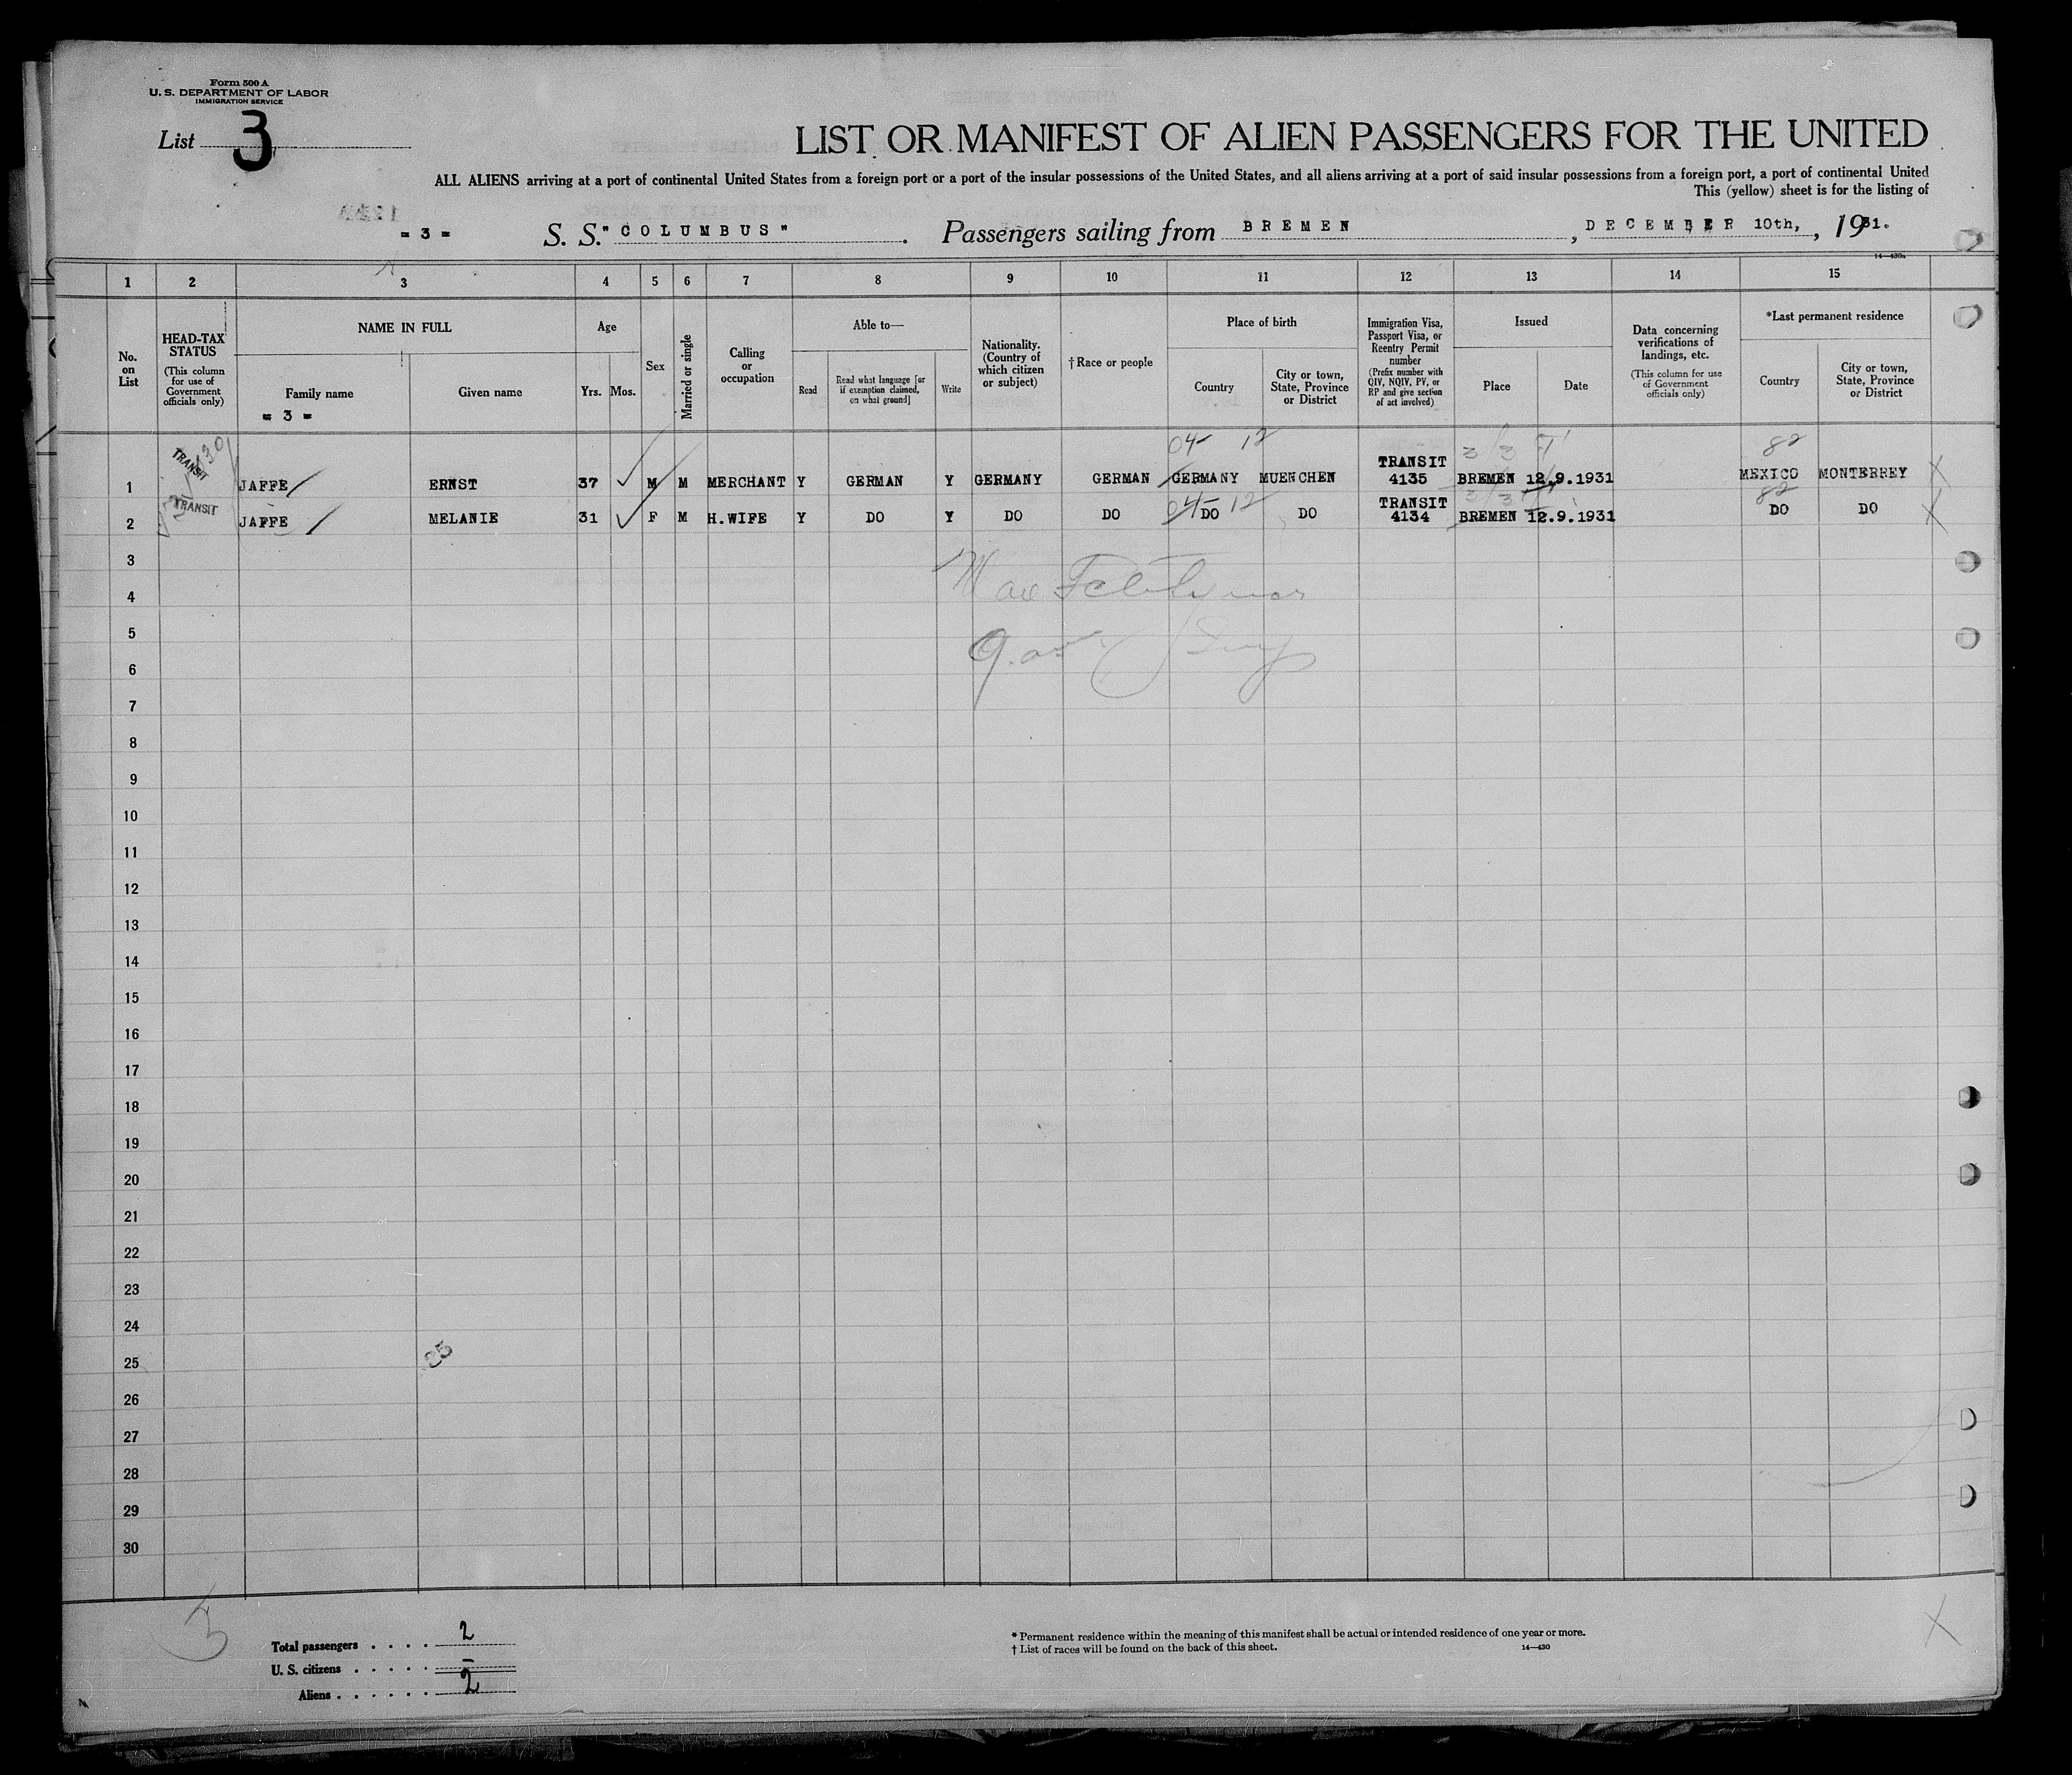 Form 500 A
U. S. DEPARTMENT OF LABOR
IMMIGRATION SERVICE
List 3
LIST OR MANIFEST OF ALIEN PASSENGERS FOR THE UNITED
ALL ALIENS arriving at a port of continental United States from a foreign port or a port of the insular possessions of the United States, and all aliens arriving at a port of said insular possessions from a foreign port, a port of continental United
This (yellow) sheet is for the listing of
= 3 = S. S. "COLUMBUS" . Passengers sailing from BREMEN , DECEMBER 10th, , 1931.
14—430a
1 2 3 4 5 6 7 8 9 10 11 12 13 14 15
No. on List
HEAD-TAX STATUS (This column for use of Government officials only)
NAME IN FULL
Family name
= 3 =
Given name
Age
Yrs. Mos.
Sex
Married or single
Calling or occupation
Able to—
Read
Read what language [or if exemption claimed, on what ground]
Write
Nationality. (Country of which citizen or subject)
† Race or people
Place of birth
Country
City or town, State, Province or District
Immigration Visa, Passport Visa, or Reentry Permit number (Prefix number with QIV, NQIV, PV, or RP and give section of act involved)
Issued
Place
Date
Data concerning verifications of landings, etc. (This column for use of Government officials only)
*Last permanent residence
Country
City or town, State, Province or District
04- 12 82
1 TRANSIT JAFFE ERNST 37 M M MERCHANT Y GERMAN Y GERMANY GERMAN GERMANY MUENCHEN TRANSIT 4135 BREMEN 12.9.1931 MEXICO MONTERREY X
04- 12 82
2 TRANSIT JAFFE MELANIE 31 F M H.WIFE Y DO Y DO DO DO DO TRANSIT 4134 BREMEN 12.9.1931 DO DO X
3
4
5
6
7
8
9
10
11
12
13
14
15
16
17
18
19
20
21
22
23
24
25
26
27
28
29
30
3
Total passengers . . . . 2
U. S. citizens . . . . . –
Aliens . . . . . . 2
* Permanent residence within the meaning of this manifest shall be actual or intended residence of one year or more.
† List of races will be found on the back of this sheet. 14—430
X